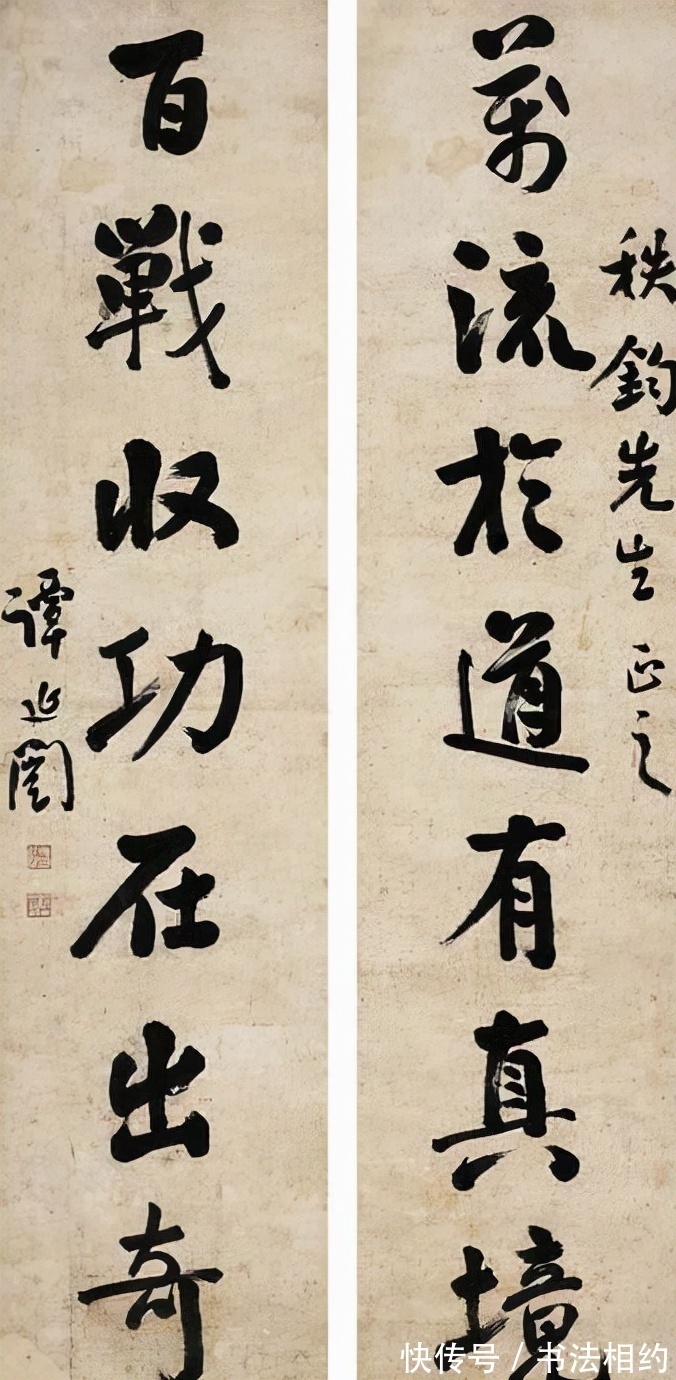 秩鈞先生正之
萬流於道有真境
百戰收功在出奇
譚延闓
快传号 / 书法相约